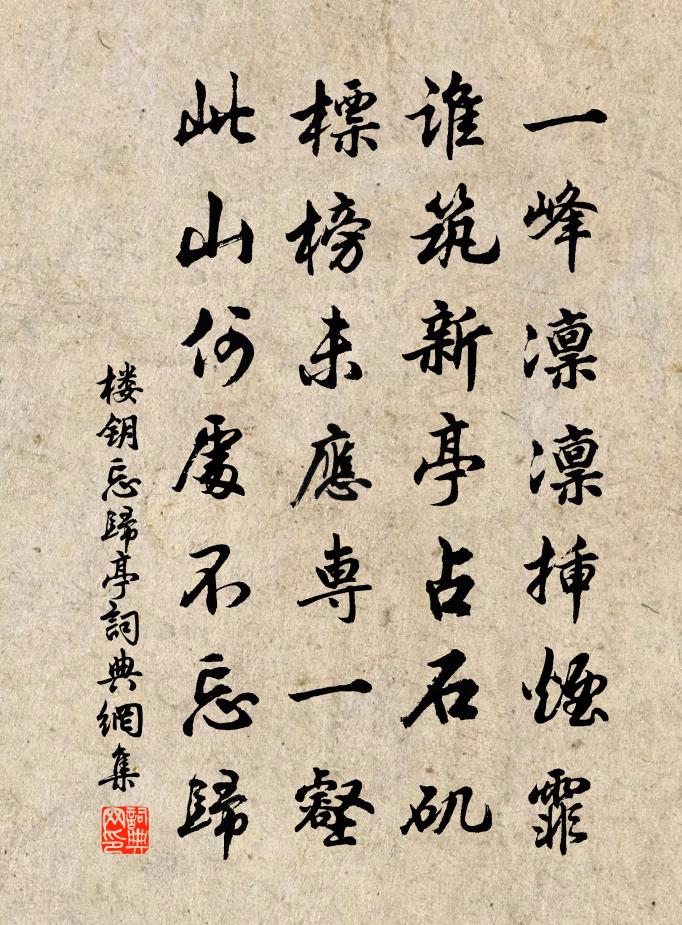 一峰凛凛挿煙霏
谁筑新亭占石矶
標榜未應専一壑
此山何處不忘歸
楼钥忘歸亭詞典網集
詞典网印